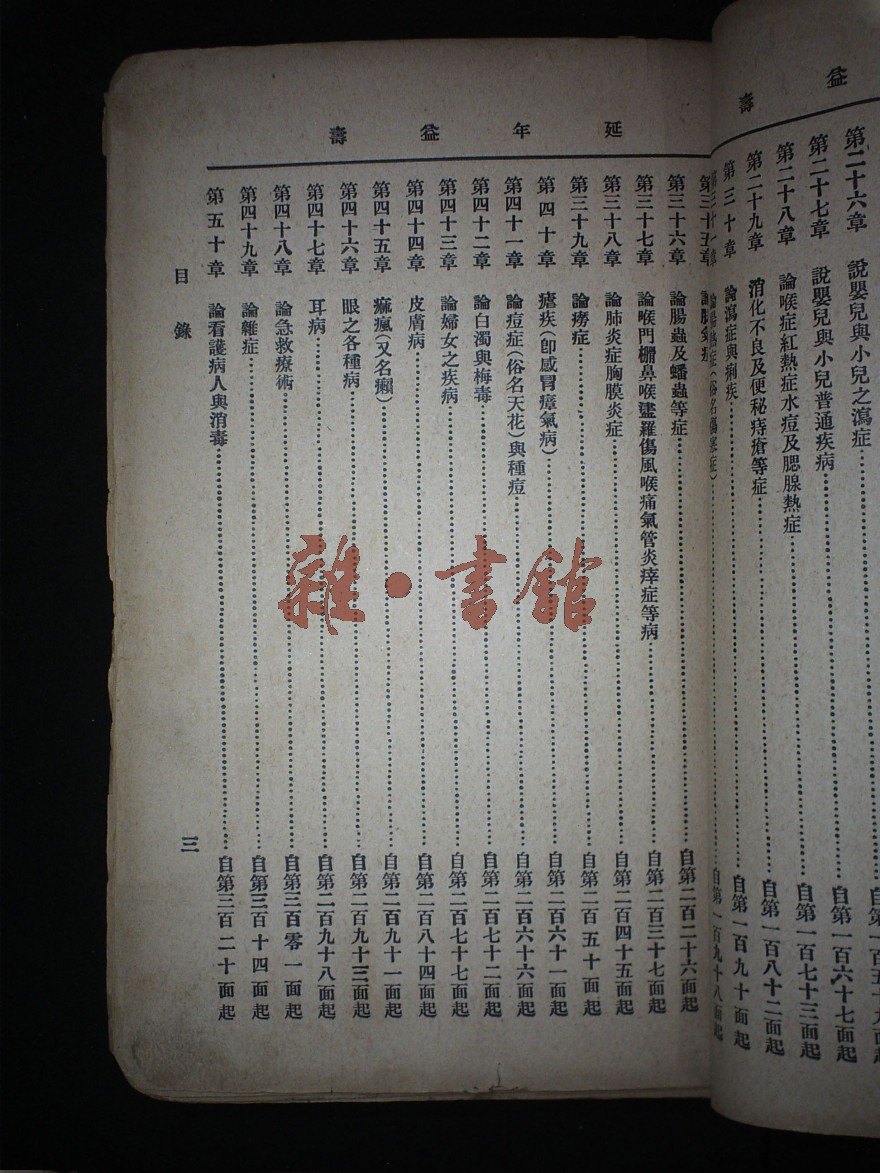 益壽
第二十六章 說嬰兒與小兒之瀉症
第二十七章 說嬰兒與小兒普通疾病 自第一百六十七面起
第二十八章 論喉症紅熱症水痘及腮腺熱症 自第一百七十三面起
第二十九章 消化不良及便秘痔瘡等症 自第一百八十二面起
第三十章 論瀉症與痢疾 自第一百九十面起
自第一百九十八面起
延年益壽
第三十五章
第三十六章 論腸蟲及蟠蟲等症 自第二百二十六面起
第三十七章 論喉門棚鼻喉盡羅傷風喉痛氣管炎痒症等病 自第二百三十七面起
第三十八章 論肺炎症胸膜炎症 自第二百四十五面起
第三十九章 論癆症 自第二百五十面起
第四十章 瘧疾(卽感冒瘴氣病) 自第二百六十一面起
第四十一章 論痘症(俗名天花)與種痘 自第二百六十六面起
第四十二章 論白濁與梅毒 自第二百七十二面起
第四十三章 論婦女之疾病 自第二百七十七面起
第四十四章 皮膚病 自第二百八十四面起
第四十五章 痲瘋(又名癩) 自第二百九十一面起
第四十六章 眼之各種病 自第二百九十三面起
第四十七章 耳病 自第二百九十八面起
第四十八章 論急救療術 自第三百零一面起
第四十九章 論雜症 自第三百十四面起
第五十章 論看護病人與消毒 自第三百二十面起
目錄
三
雜·書館